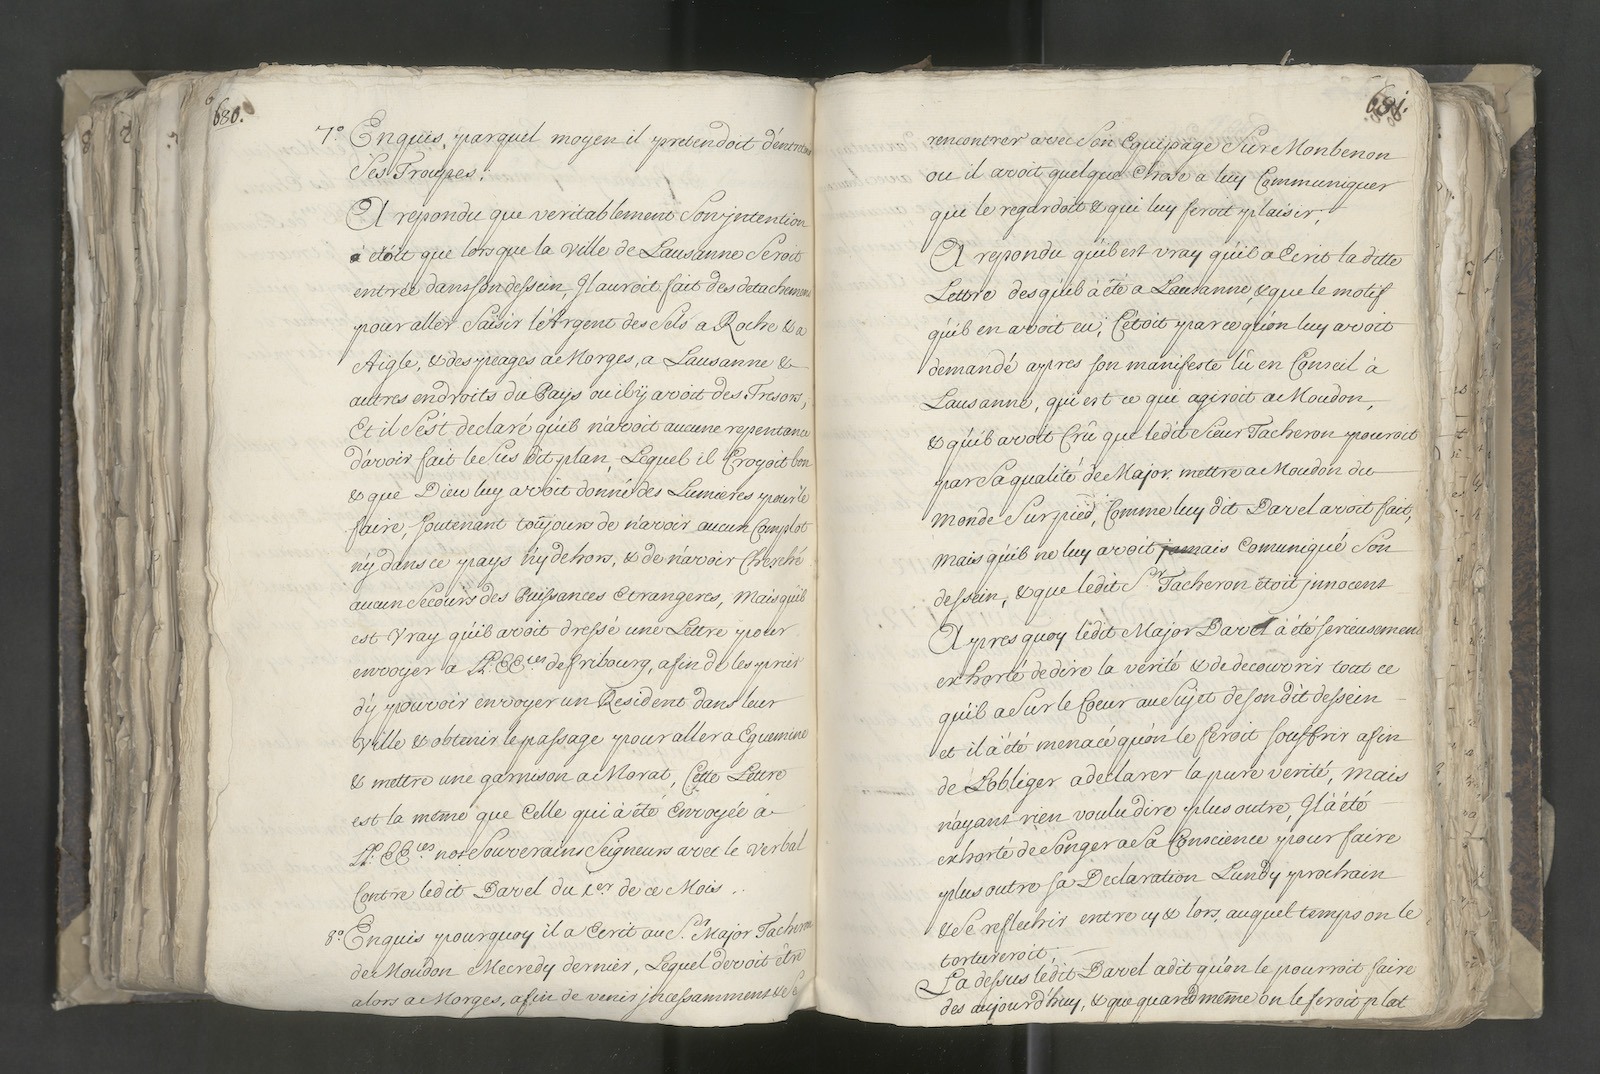 680.
7.° Enquis, par quel moyen il pretendoit d'entretenir
Ses Troupes.
A repondu que veritablement Son jntention
étoit que lors que la Ville de Lausanne Seroit
entrée dans son dessein, Il auroit fait des detachemens
pour aller Saisir l'Argent des Sels a Roche & a
Aigle, & des peages de Morges, a Lausanne &
autres endroits du Pays ou il ÿ avoit des Tresors,
Et il S'est declaré qu'il n'avoit aucune repentance
d'avoir fait le Sus dit plan, Lequel il Croyoit bon
& que Dieu luy avoit donné des Lumieres pour le
faire, Soutenant toûjours de n'avoir aucun Complot
nÿ dans ce pays nÿ dehors, & de n'avoir Cherché
aucun Secours des Puissances Etrangeres, Mais qu'il
est Vray qu'il avoit dressé une Lettre pour
envoyer a LL. EE.ces de fribourg, afin de les prier
d'ÿ pouvoir envoyer un Resident dans leur
Ville & obtenir le passage pour aller a Eguemine
& mettre une garnison a Morat, Cette Lettre
est la même que Celle qui à été Envoyée à
LL. EE.ces nos Souverains Seigneurs avec le Verbal
Contre ledit Davel du 1.er de ce Mois.
8.° Enquis pourquoy il a Ecrit au S.r Major Tacheron
de Moudon Mecredy dernier, Lequel devoit être
alors a Morges, afin de venir jncessamment & se
681.
rencontrer avec Son Equipage Sur Monbenon
ou il avoit quelque Chose a luy Communiquer
qui le regardoit & qui luy feroit plaisir,
A repondu qu'il est vray qu'il a Ecrit la ditte
Lettre des qu'il à été a Lausanne, & que le motif
qu'il en avoit eu, C'étoit parce qu'on luy avoit
demandé apres son manifeste lû en Conseil à
Lausanne, qui est ce qui agiroit a Moudon,
& qu'il avoit Crû que ledit Sieur Tacheron pouroit
par Sa qualité de Major mettre a Moudon du
monde Sur pied, Comme luy dit Davel avoit fait,
Mais qu'il ne luy avoit jamais Comuniqué Son
dessein, & que ledit S.r Tacheron étoit jnnocent
Apres quoy ledit Major Davel à été serieusement
exhorté de dire la verité & de decouvrir tout ce
qu'il a Sur le Coeur au Sujet de son dit dessein
et il à été menacé qu'on le feroit souffrir afin
de L'obliger a declarer la pure verité, Mais
n'ayant rien voulu dire plus outre, Il à été
exhorté de Songer a Sa Conscience pour faire
plus outre sa Declaration Lundy prochain
& Se reflechir entre cy & lors, auquel temps on le
tortureroit.
La dessus ledit Davel a dit qu'on le pourroit faire
des aujourd'huy, & que quand même on le feroit plat